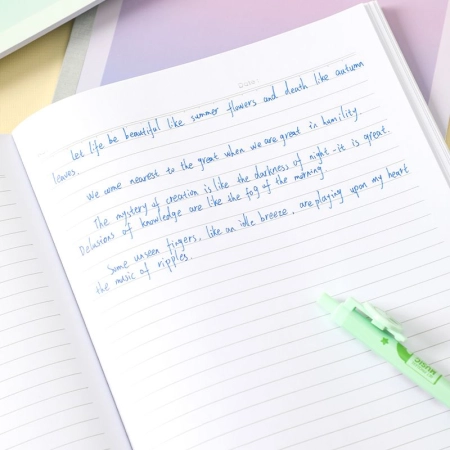 Date:
Let life be beautiful like summer flowers and death like autumn
leaves.
We come nearest to the great when we are great in humility.
The mystery of creation is like the darkness of night-it is great.
Delusions of knowledge are like the fog of the morning.
Some unseen fingers, like an idle breeze, are playing upon my heart
the music of ripples.